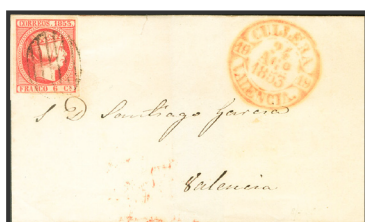 CORREOS. 1853.
FRANCO 6 Cs.
CULLERA
24
AGO
1853
VALENCIA
S D Santiago Garcia
Valencia